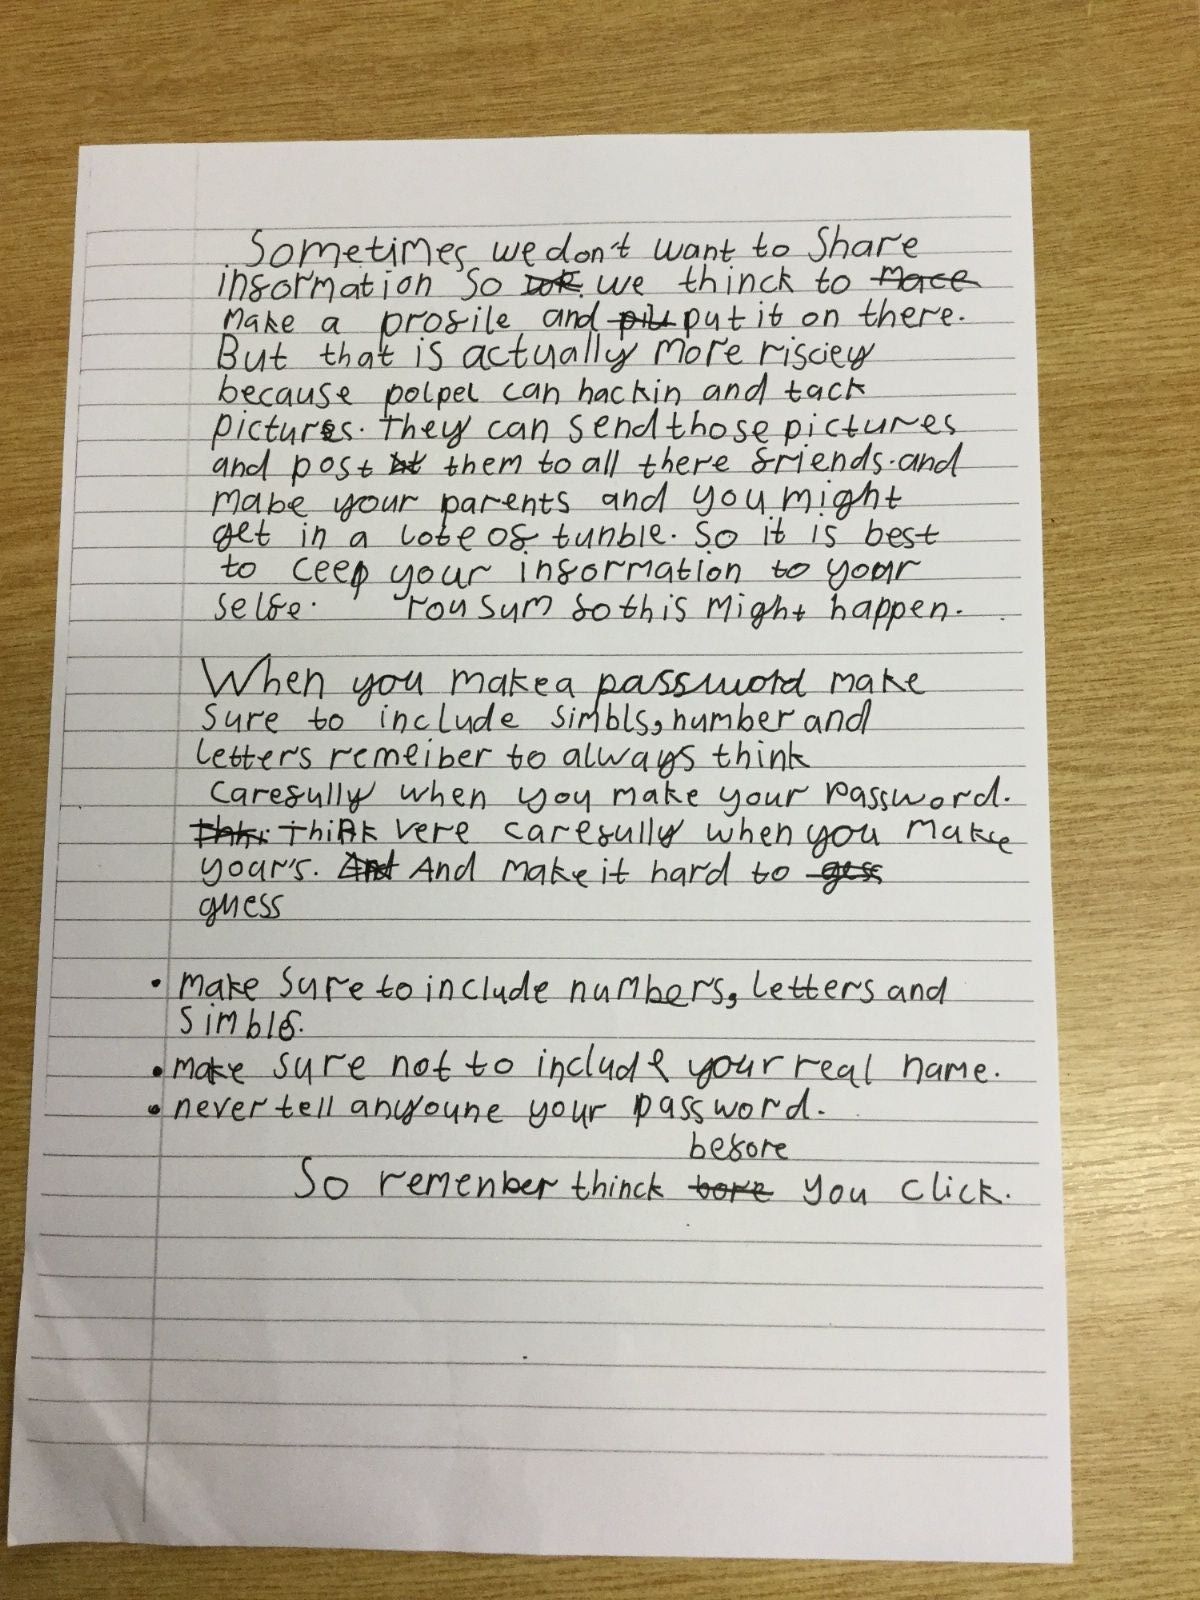 Sometimes we don't want to Share
information So we thinck to Mace
make a profile and put it on there.
But that is actually more risciey
because polpel can hackin and tack
pictures. They can send those pictures
and post them to all there friends. and
mabe your parents and you might
get in a lote of tunble. So it is best
to ceep your information to your
selfe. so this Might happen.
When you make a password make
Sure to include simbls, number and
letters remeiber to always think
Carefully when you make your Password.
Think vere carefully when you make
your's. And And make it hard to gess
guess
• make Sure to include numbers, letters and
Simbls.
• make sure not to include your real name.
• never tell anyoune your password.
before
So remenber thinck bore you click.